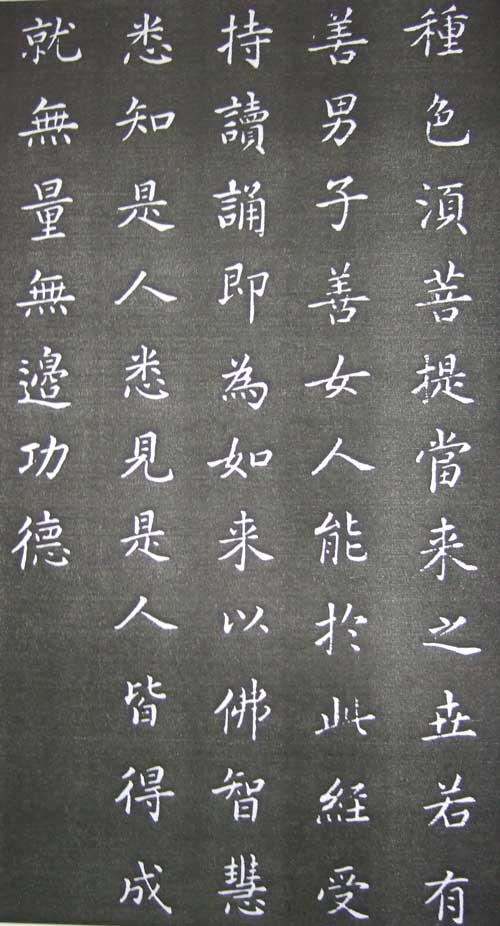 種色湏菩提當来之世若有
善男子善女人能於此經受
持讀誦即為如来以佛智慧
悉知是人悉見是人皆得成
就無量無邊功德